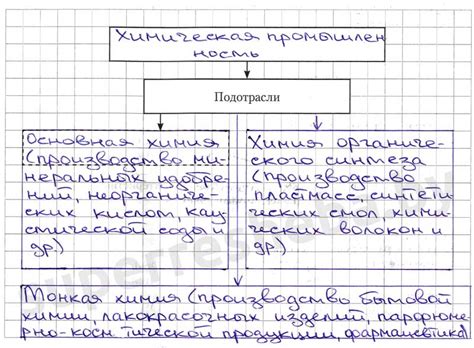 Химическая промышлен
ность
Подотрасли
Основная химия
(производство ми-
неральных удобре-
ний, неорганиче-
ских кислот, кау
стической соды и
др.)
Химия органиче-
ского синтеза
(производство
пластмасс, синтети
ческих смол, хими
ческих волокон и
др.)
Монкая химия (производство бытовой
химии, лакокрасочных изделий, парфюме
рно-косм тической продукции, фармацевтика)